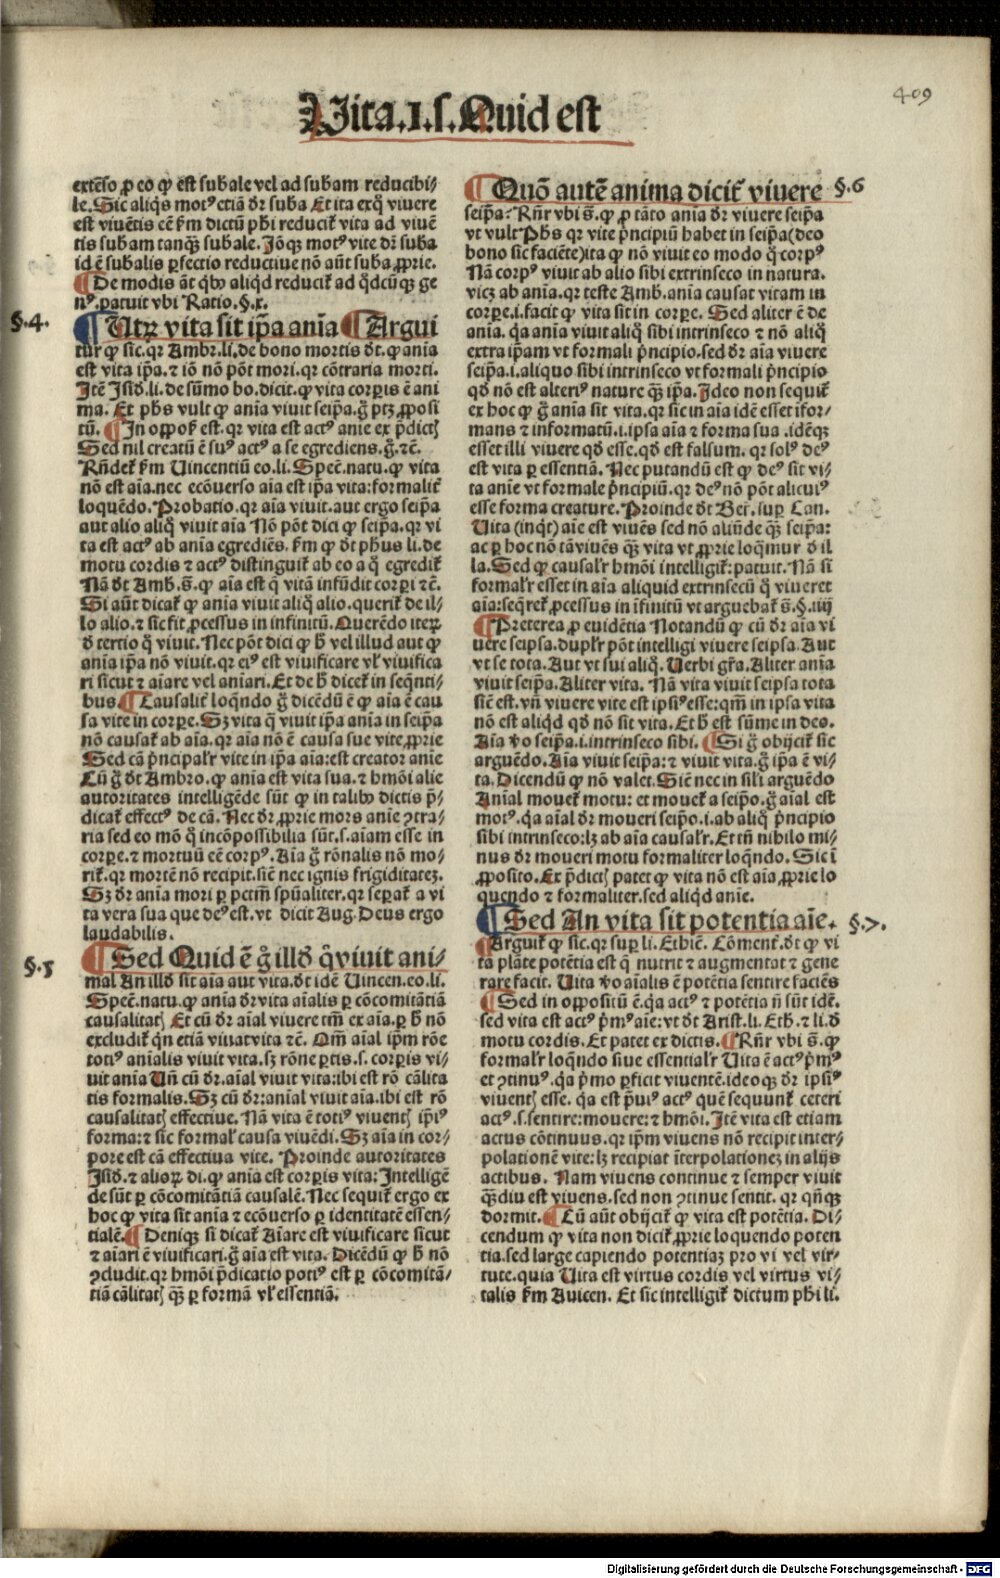 409
Vita.I.s. Quid est
extẽso ꝓ eo ꝙ est subale vel ad subam reducibi⸗
le. Sic aliqͥs motꝰ etiã dr̃ suba Et ita exq̃ viuere
est viuẽtis eẽ ẜm dictũ phi reducit᷑ vita ad viuẽ
tis subam tanqꝫ subale. Jõqꝫ motꝰ vite dr̃ suba
id ẽ subalis ꝑfectio reductiue nõ aũt suba ꝓprie.
¶ De modis ãt qͥbꝰ aliqd reducit᷑ ad qͥdcũqꝫ ge
nꝰ. patuit vbi Ratio. §.x.
§.4.
¶ Utꝝ vita sit ip̃a anĩa ¶ Argui
tur ꝙ sic. qꝛ Ambr. li. de bono mortis dt̃. ꝙ anĩa
est vita ip̃a. ⁊ iõ nõ põt mori. qꝛ cõtraria morti.
Jtẽ Jsid̃. li. de sũmo bo. dicit. ꝙ vita corꝑis ẽ ani
ma. Et phs vult ꝙ anĩa viuit seip̃a. g̃ ptꝫ ꝓposi
tũ. ¶ Jn oppoꝭ est. qꝛ vita est actꝰ anie ex p̃dict̃
Sed nil creatũ ẽ suꝰ actꝰ a se egrediens. g̃. ⁊c̃.
Rñdet᷑ ẜm Vincentiũ eo. li. Specͥ. natu. ꝙ vita
nõ est aĩa. nec ecõuerso aĩa est ip̃a vita: formalit᷑
loquẽdo. Probatio. qꝛ aĩa viuit. aut ergo seip̃a
aut alio aliq̃ viuit aĩa Nõ põt dici ꝙ seip̃a. qꝛ vi
ta est actꝰ ab anĩa egrediẽs. ẜm ꝙ dt̃ phus li. de
motu cordis ⁊ actꝰ distinguit᷑ ab eo a q̃ egredit᷑
Nã dt̃ Amb. s̃. ꝙ aĩa est q̃ vitã infũdit corꝑi ⁊c̃.
Si aũt dicat᷑ ꝙ anĩa viuit aliq̃ alio. querit᷑ de il⸗
lo alio. ⁊ sic fit ꝓcessus in infinitũ. Querẽdo iteꝝ
d̃ tertio q̃ viuit. Nec põt dici ꝙ h̃ vel illud aut ꝙ
anĩa ip̃a nõ viuit. qꝛ eiꝰ est viuificare vl̃ viuifica
ri sicut ⁊ aĩare vel anĩari. Et de h̃ dicet᷑ in seqñti⸗
bus. ¶ Causalit᷑ loqñdo g̃ dicẽdũ ẽ ꝙ aĩa ẽ cau
sa vite in corꝑe. Sꝫ vita q̃ viuit ip̃a anĩa in seip̃a
nõ causat᷑ ab aĩa. qꝛ aĩa nõ ẽ causa sue vite ꝓprie
Sed cã p̃ncipalr̃ vite in ip̃a aĩa: est creator anie
Cũ g̃ dt̃ Ambro. ꝙ anĩa est vita sua. ⁊ hmõi alie
autoritates intelligẽde sũt ꝙ in talibꝰ dictis p̃⸗
dicat᷑ effectꝰ de cã. Nec dr̃ ꝓprie mors anie ꝯtra⸗
ria sed eo mõ q̃ incõpossibilia sũt. s. aĩam esse in
corꝑe. ⁊ mortuũ eẽ corpꝰ. Aĩa g̃ rõnalis nõ mo⸗
rit᷑. qꝛ mortẽ nõ recipit. sicͥ nec ignis frigiditatẽ.
Sꝫ dr̃ anĩa mori ꝑ pctm̃ spũaliter. qꝛ seꝑat᷑ a vi
ta vera sua que deꝰ est. vt dicit Aug. Deus ergo
laudabilis.
§.5
¶ Sed Quid ẽ g̃ illd̃ q̃ viuit ani⸗
mal An illd̃ sit aĩa aut vita. dt̃ idẽ Vincen. eo. li.
Specͥ. natu. ꝙ anĩa dr̃ vita aĩalis ꝑ cõcomitãtiã
causalitat̃. Et cũ dr̃ aĩal viuere tm̃ ex aĩa. ꝑ h̃ nõ
excludit᷑ qñ etiã viuat vita ⁊c̃. Om̃ aĩal ip̃m rõe
totiꝰ anĩalis viuit vita. sꝫ rõne ꝑtis. s. corꝑis vi⸗
uit anĩa Uñ cũ dr̃. aĩal viuit vita: ibi est rõ cãlita
tis formalis. Sꝫ cũ dr̃: anĩal viuit aĩa. ibi est rõ
causalitat̃ effectiue. Nã vita ẽ totiꝰ viuent̃ ip̃iꝰ
forma: ⁊ sic formalꝭ causa viuẽdi. Sꝫ aĩa in cor⸗
pore est cã effectiua vite. Proinde autoritates
Jsid̃. ⁊ alioꝝ di. ꝙ anĩa est corꝑis vita: Jntelligẽ
de sũt ꝑ cõcomitãtiã causalẽ. Nec sequit᷑ ergo ex
hoc ꝙ vita sit anĩa ⁊ ecõuerso ꝑ identitatẽ essen⸗
tialẽ. ¶ Deniqꝫ si dicat᷑ Aĩare est viuificare sicut
⁊ aĩari ẽ viuificari. g̃ aĩa est vita. Dicẽdũ ꝙ h̃ nõ
ꝯcludit. qꝛ hmõi p̃dicatio potiꝰ est ꝑ cõcomitã⸗
tiã cãlitat̃ qꝫ ꝑ formã vl̃ essentiã.
¶ Quõ autẽ anima dicit᷑ viuere §.6
seip̃a: Rñr vbi s̃. ꝙ ꝓ tãto anĩa dr̃ viuere seip̃a
vt vult Phs qꝛ vite p̃ncipiũ habet in seip̃a (deo
bono sic faciẽte) ita ꝙ nõ viuit eo modo q̃ corpꝰ
Nã corpꝰ viuit ab alio sibi extrinseco in natura.
vicꝫ ab anĩa. qꝛ teste Amb. anĩa causat vitam in
corꝑe. i. facit ꝙ vita sit in corꝑe. Sed aliter ẽ de
anĩa. qͥa anĩa viuit aliq̃ sibi intrinseco ⁊ nõ aliq̃
extra ip̃am vt formali p̃ncipio. sed dr̃ aĩa viuere
seip̃a. i. aliquo sibi intrinseco vt formali p̃ncipio
qd̃ nõ est alteriꝰ nature qꝫ ip̃a. Jdeo non sequit᷑
ex hoc ꝙ g̃ anĩa sit vita. qꝛ sic in aĩa idẽ esset ifor⸗
mans ⁊ informatũ. i. ipsa aĩa ⁊ forma sua. idẽqꝫ
esset illi viuere qd̃ esse. qd̃ est falsum. qꝛ solꝰ deꝰ
est vita ꝑ essentiã. Nec putandũ est ꝙ deꝰ sit vi⸗
ta anĩe vt formale p̃ncipiũ. qꝛ deꝰ nõ põt alicuiꝰ
esse forma creature. Proinde dt̃ Ber̃. suꝑ Can.
Vita (inqͥt) aĩe est viuẽs sed nõ aliũde qꝫ seip̃a:
ac ꝑ hoc nõ tã viuẽs qꝫ vita vt ꝓprie loq̃mur d̃ il
la. Sed ꝙ causalr̃ hmõi intelligit᷑: patuit. Nã si
formalr̃ esset in aĩa aliquid extrinsecũ q̃ viueret
aĩa: seqͥret᷑ ꝓcessus in ĩfinitũ vt arguebat᷑ s̃. §. iiij
¶ Preterea ꝓ euidẽtia Notandũ ꝙ cũ dr̃ aĩa vi
uere seipsa. duplr̃ põt intelligi viuere seipsa. Aut
vt se tota. Aut vt sui aliq̃. Verbi gr̃a. Aliter anĩa
viuit seip̃a. Aliter vita. Nã vita viuit seipsa tota
sicͥ est. vñ viuere vite est ipsiꝰ esse: qm̃ in ipsa vita
nõ est aliqͥd qd̃ nõ sit vita. Et h̃ est sũme in deo.
Aĩa ṽo seip̃a. i. intrinseco sibi. ¶ Si g̃ obijcit᷑ sic
arguẽdo. Aĩa viuit seip̃a: ⁊ viuit vita. g̃ ip̃a ẽ vi⸗
ta. Dicendũ ꝙ nõ valet. Sicͥ nec in sil̃i arguẽdo
Anĩal mouet᷑ motu: et mouet᷑ a seip̃o. g̃ aĩal est
motꝰ. qͥa aĩal dr̃ moueri seip̃o. i. ab aliq̃ p̃ncipio
sibi intrinseco: lꝫ ab aĩa causalr̃. Et tñ nihilo mi⸗
nus dr̃ moueri motu formaliter loqñdo. Sic ĩ
ꝓposito. Ex p̃dict̃ patet ꝙ vita nõ est aĩa ꝓprie lo
quendo ⁊ formaliter. sed aliqͥd anĩe.
¶ Sed An vita sit potentia aĩe. §.7.
¶ Arguit᷑ ꝙ sic. qꝛ suꝑ li. Ethicͥ. Cõment̃. dt̃ ꝙ vi
ta plãte potẽtia est q̃ nutrit ⁊ augmentat ⁊ gene
rare facit. Vita ṽo aĩalis ẽ potẽtia sentire faciẽs
¶ Sed in oppositũ ẽ. qͥa actꝰ ⁊ potẽtia ñ sũt idẽ.
sed vita est actꝰ p̃mꝰ aĩe: vt dt̃ Arist. li. Eth. ⁊ li. d̃
motu cordis. Et patet ex dictis. ¶ Rñr vbi s̃. ꝙ
formalr̃ loqñdo siue essentialr̃ Vita ẽ actꝰ p̃mꝰ
et ꝯtinuꝰ. qͥa p̃mo ꝑficit viuentẽ. ideoqꝫ dr̃ ipsiꝰ
viuent̃ esse. qͥa est p̃uiꝰ actꝰ quẽ sequunt᷑ ceteri
actꝰ. s. sentire: mouere: ⁊ hmõi. Jtẽ vita est etiam
actus cõtinuus. qꝛ ip̃m viuens nõ recipit inter⸗
polationẽ vite: lꝫ recipiat ĩterpolationez in alijs
actibus. Nam viuens continue ⁊ semper viuit
qꝫdiu est viuens. sed non ꝯtinue sentit. qꝛ qñqꝫ
dormit. ¶ Cũ aũt obijcit᷑ ꝙ vita est potẽtia. Di⸗
cendum ꝙ vita non dicit᷑ ꝓprie loquendo poten
tia. sed large capiendo potentiaꝫ pro vi vel vir⸗
tute. quia Vita est virtus cordis vel virtus vi⸗
talis ẜm Auicen. Et sic intelligit᷑ dictum phi li.
Digitalisierung gefördert durch die Deutsche Forschungsgemeinschaft - DFG